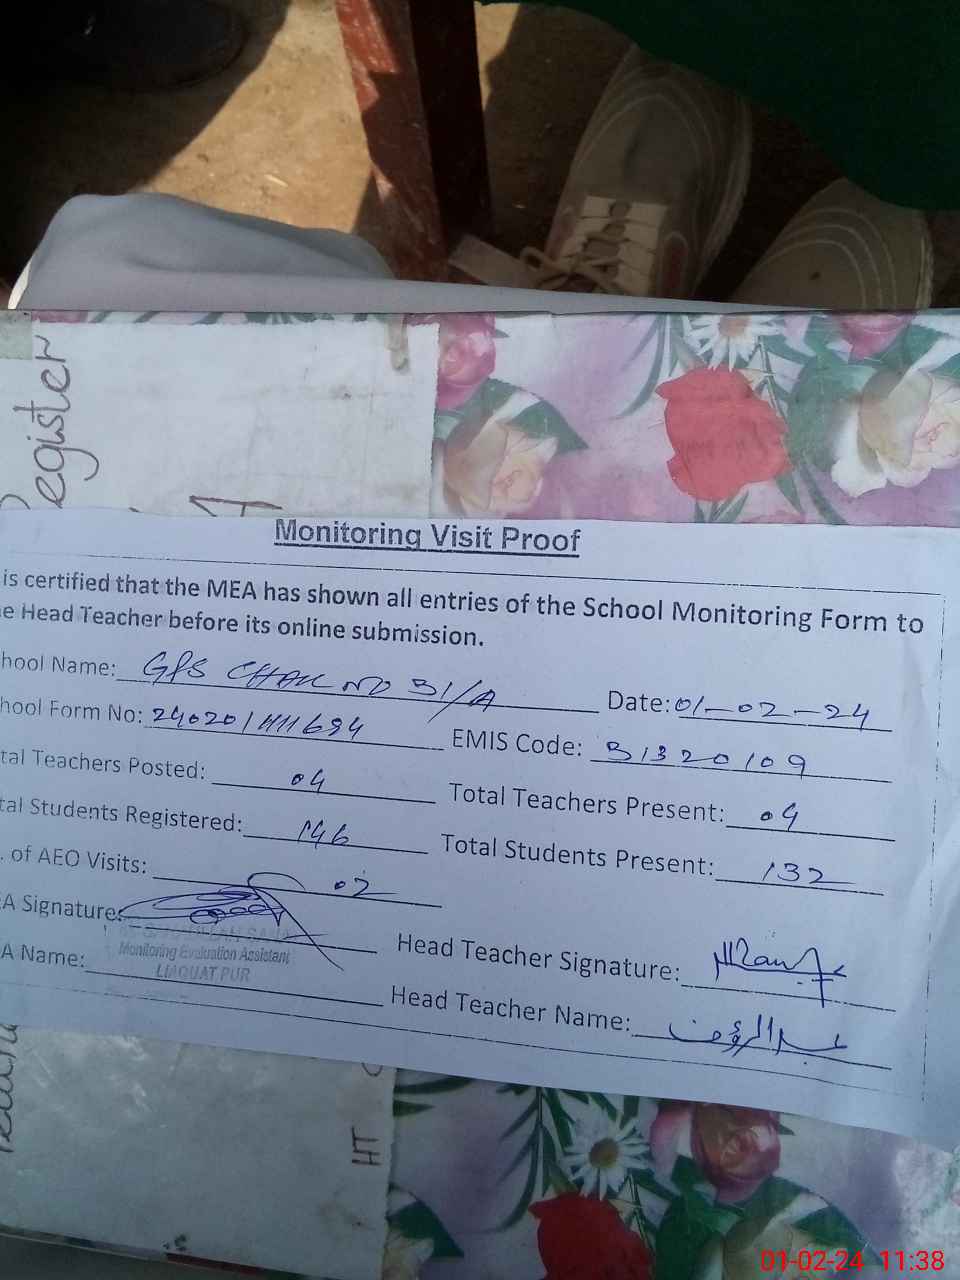 Register
A
Monitoring Visit Proof
is certified that the MEA has shown all entries of the School Monitoring Form to
e Head Teacher before its online submission.
hool Name: GPS CHAK NO 31/A Date: 01-02-24
hool Form No: 240201111694 EMIS Code: 31320109
tal Teachers Posted: 04 Total Teachers Present: 04
tal Students Registered: 146 Total Students Present: 132
. of AEO Visits: 02
A Signature: Head Teacher Signature:
Monitoring Evaluation Assistant
LIAQUAT PUR
A Name: Head Teacher Name: عبدالرؤف
HT
01-02-24 11:38